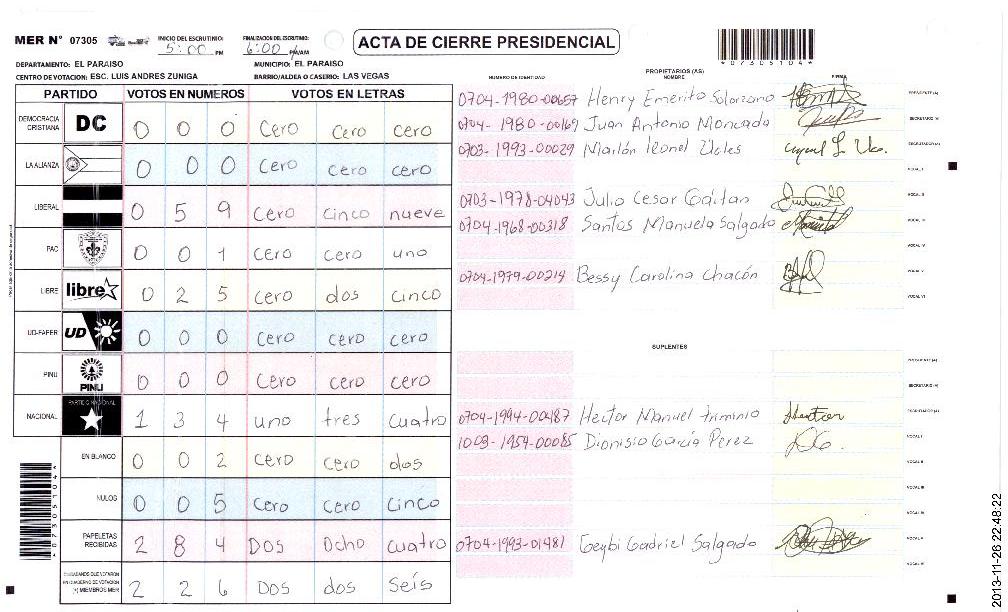 MER N° 07305
INICIO DEL ESCRUTINIO: 5:00 PM
FINALIZACION DEL ESCRUTINIO: 6:00 PM/AM
ACTA DE CIERRE PRESIDENCIAL
*07305104*
DEPARTAMENTO: EL PARAISO
MUNICIPIO: EL PARAISO
CENTRO DE VOTACION: ESC. LUIS ANDRES ZUNIGA
BARRIO/ALDEA O CASERIO: LAS VEGAS
PARTIDO VOTOS EN NUMEROS VOTOS EN LETRAS
DEMOCRACIA CRISTIANA DC 0 0 0 Cero Cero cero
LA ALIANZA 0 0 0 Cero cero cero
LIBERAL 0 5 9 Cero cinco nueve
PAC 0 0 1 Cero cero uno
LIBRE libre 0 2 5 Cero dos cinco
UD-FAPER UD 0 0 0 Cero cero cero
PINU PINU 0 0 0 Cero cero cero
NACIONAL PARTIDO NACIONAL 1 3 4 uno tres cuatro
EN BLANCO 0 0 2 Cero cero dos
NULOS 0 0 5 Cero Cero Cinco
PAPELETAS RECIBIDAS 2 8 4 Dos Ocho cuatro
CIUDADANOS QUE VOTARON EN CUADERNO DE VOTACION (+) MIEMBROS MER 2 2 6 Dos dos seis
*07305104*
PROPIETARIOS (AS)
NUMERO DE IDENTIDAD NOMBRE FIRMA
0704-1980-00657 Henry Emerito Solorzano PRESIDENTE (A)
0704-1980-00169 Juan Antonio Moncada SECRETARIO (A)
0703-1993-00029 Marlón Leonel Ucles ESCRUTADOR (A)
VOCAL I
0703-1978-04043 Julio Cesar Gáitan VOCAL II
0704-1968-00318 Santos Manuela Salgado VOCAL III
VOCAL IV
0704-1979-00214 Bessy Carolina Chacón VOCAL V
VOCAL VI
SUPLENTES
PRESIDENTE (A)
SECRETARIO (A)
0704-1994-00487 Hector Manuel Triminio ESCRUTADOR (A)
1003-1954-00085 Dionisio Garcia Perez VOCAL I
VOCAL II
VOCAL III
VOCAL IV
0704-1993-01481 Geybi Gadriel Salgado VOCAL V
VOCAL VI
2013-11-26 22:48:22